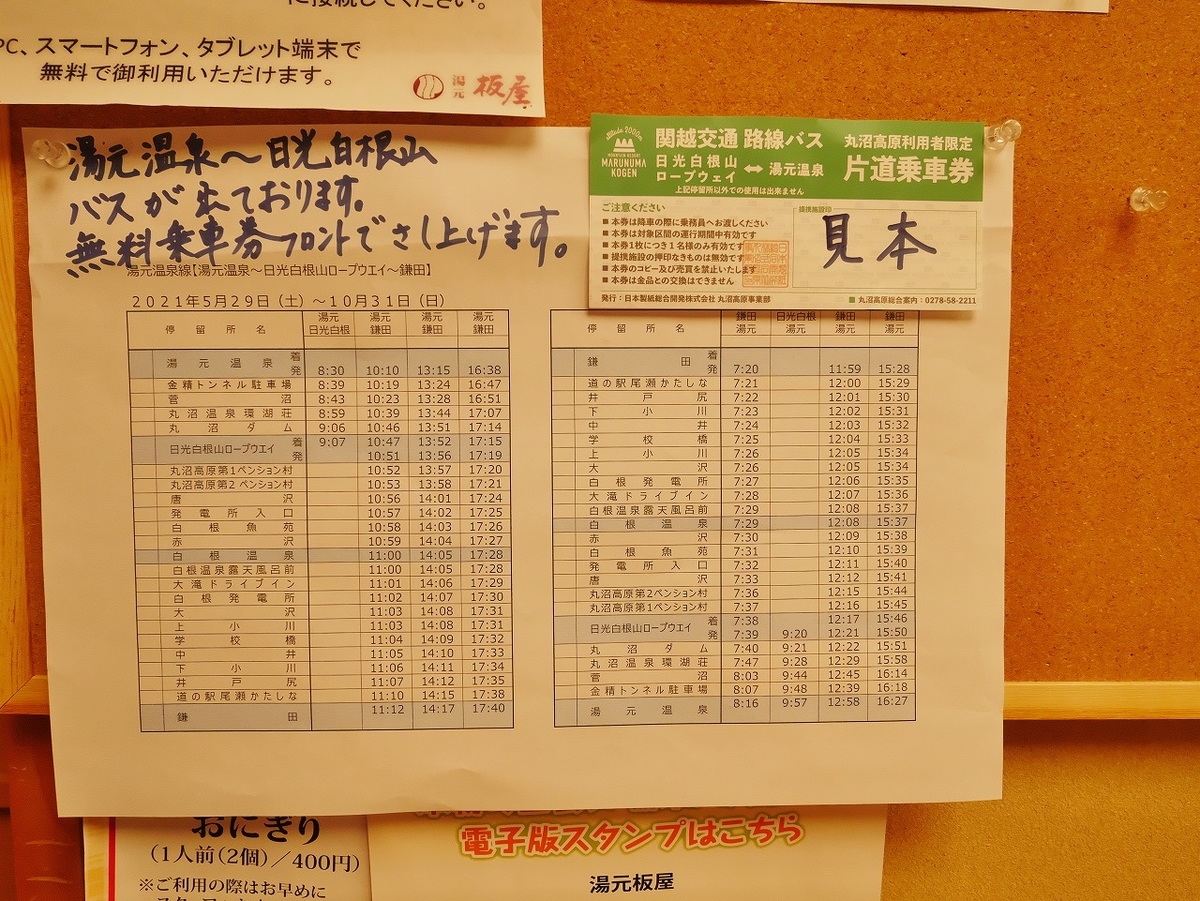 に接続してください。
PC、スマートフォン、タブレット端末で
無料で御利用いただけます。
湯元 板屋
湯元温泉～日光白根山
バスが出ております。
無料乗車券フロントでさし上げます。
Altitude 2000m
MOUNTAIN RESORT
MARUNUMA
KOGEN
関越交通 路線バス
日光白根山
ロープウェイ ⇔ 湯元温泉
丸沼高原利用者限定
片道乗車券
上記停留所以外での使用は出来ません
ご注意ください
■ 本券は降車の際に乗務員へお渡しください
■ 本券は対象区間の運行期間中有効です
■ 本券1枚につき1名様のみ有効です
■ 提携施設の押印なきものは無効です
■ 本券のコピー及び売買を禁止いたします
■ 本券は金品との交換はできません
提携施設印
見本
発行：日本製紙総合開発株式会社 丸沼高原事業部
■ 丸沼高原総合案内：0278-58-2211
湯元温泉線【湯元温泉～日光白根山ロープウエイ～鎌田】
2021年5月29日（土）～10月31日（日）
停留所名 湯元 日光白根 湯元 鎌田 湯元 鎌田 湯元 鎌田
湯元温泉 着
発 8:30 10:10 13:15 16:38
金精トンネル駐車場 8:39 10:19 13:24 16:47
菅沼 8:43 10:23 13:28 16:51
丸沼温泉環湖荘 8:59 10:39 13:44 17:07
丸沼ダム 9:06 10:46 13:51 17:14
日光白根山ロープウエイ 着 9:07 10:47 13:52 17:15
発 10:51 13:56 17:19
丸沼高原第1ペンション村 10:52 13:57 17:20
丸沼高原第2ペンション村 10:53 13:58 17:21
唐沢 10:56 14:01 17:24
発電所入口 10:57 14:02 17:25
白根魚苑 10:58 14:03 17:26
赤沢 10:59 14:04 17:27
白根温泉 11:00 14:05 17:28
白根温泉露天風呂前 11:00 14:05 17:28
大滝ドライブイン 11:01 14:06 17:29
白根発電所 11:02 14:07 17:30
大沢 11:03 14:08 17:31
上小川 11:03 14:08 17:31
学校橋 11:04 14:09 17:32
中井 11:05 14:10 17:33
下小川 11:06 14:11 17:34
井戸尻 11:07 14:12 17:35
道の駅尾瀬かたしな 11:10 14:15 17:38
鎌田 11:12 14:17 17:40
停留所名 鎌田 湯元 日光白根 湯元 鎌田 湯元 鎌田 湯元
鎌田 着
発 7:20 11:59 15:28
道の駅尾瀬かたしな 7:21 12:00 15:29
井戸尻 7:22 12:01 15:30
下小川 7:23 12:02 15:31
中井 7:24 12:03 15:32
学校橋 7:25 12:04 15:33
上小川 7:26 12:05 15:34
大沢 7:26 12:05 15:34
白根発電所 7:27 12:06 15:35
大滝ドライブイン 7:28 12:07 15:36
白根温泉露天風呂前 7:29 12:08 15:37
白根温泉 7:29 12:08 15:37
赤沢 7:30 12:09 15:38
白根魚苑 7:31 12:10 15:39
発電所入口 7:32 12:11 15:40
唐沢 7:33 12:12 15:41
丸沼高原第2ペンション村 7:36 12:15 15:44
丸沼高原第1ペンション村 7:37 12:16 15:45
日光白根山ロープウエイ 着 7:38 12:17 15:46
発 7:39 9:20 12:21 15:50
丸沼ダム 7:40 9:21 12:22 15:51
丸沼温泉環湖荘 7:47 9:28 12:29 15:58
菅沼 8:03 9:44 12:45 16:14
金精トンネル駐車場 8:07 9:48 12:39 16:18
湯元温泉 8:16 9:57 12:58 16:27
おにぎり
（1人前(2個)／400円）
※ご利用の際はお早めに
電子版スタンプはこちら
湯元板屋